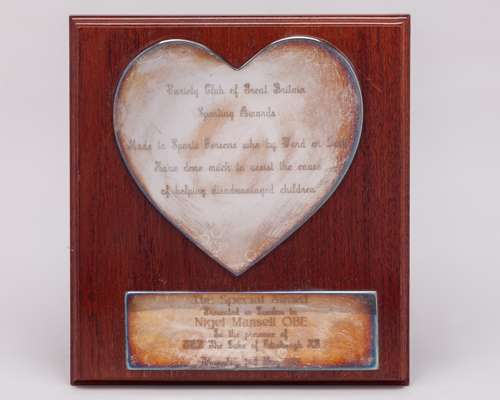 Variety Club of Great Britain
Sporting Awards
Made to Sports Persons who by Word or Deed
Have done much to assist the cause
of helping disadvantaged children
The Special Award
Presented in London to
Nigel Mansell OBE
In the presence of
HRH The Duke of Edinburgh KG